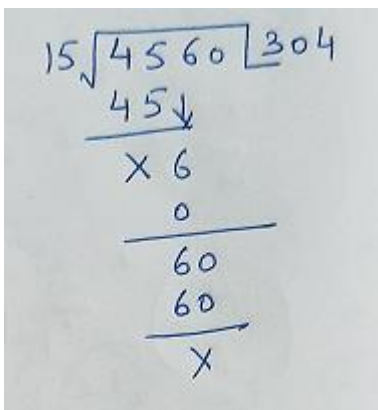 15√4560 304
45↓
× 6
0
60
60
×